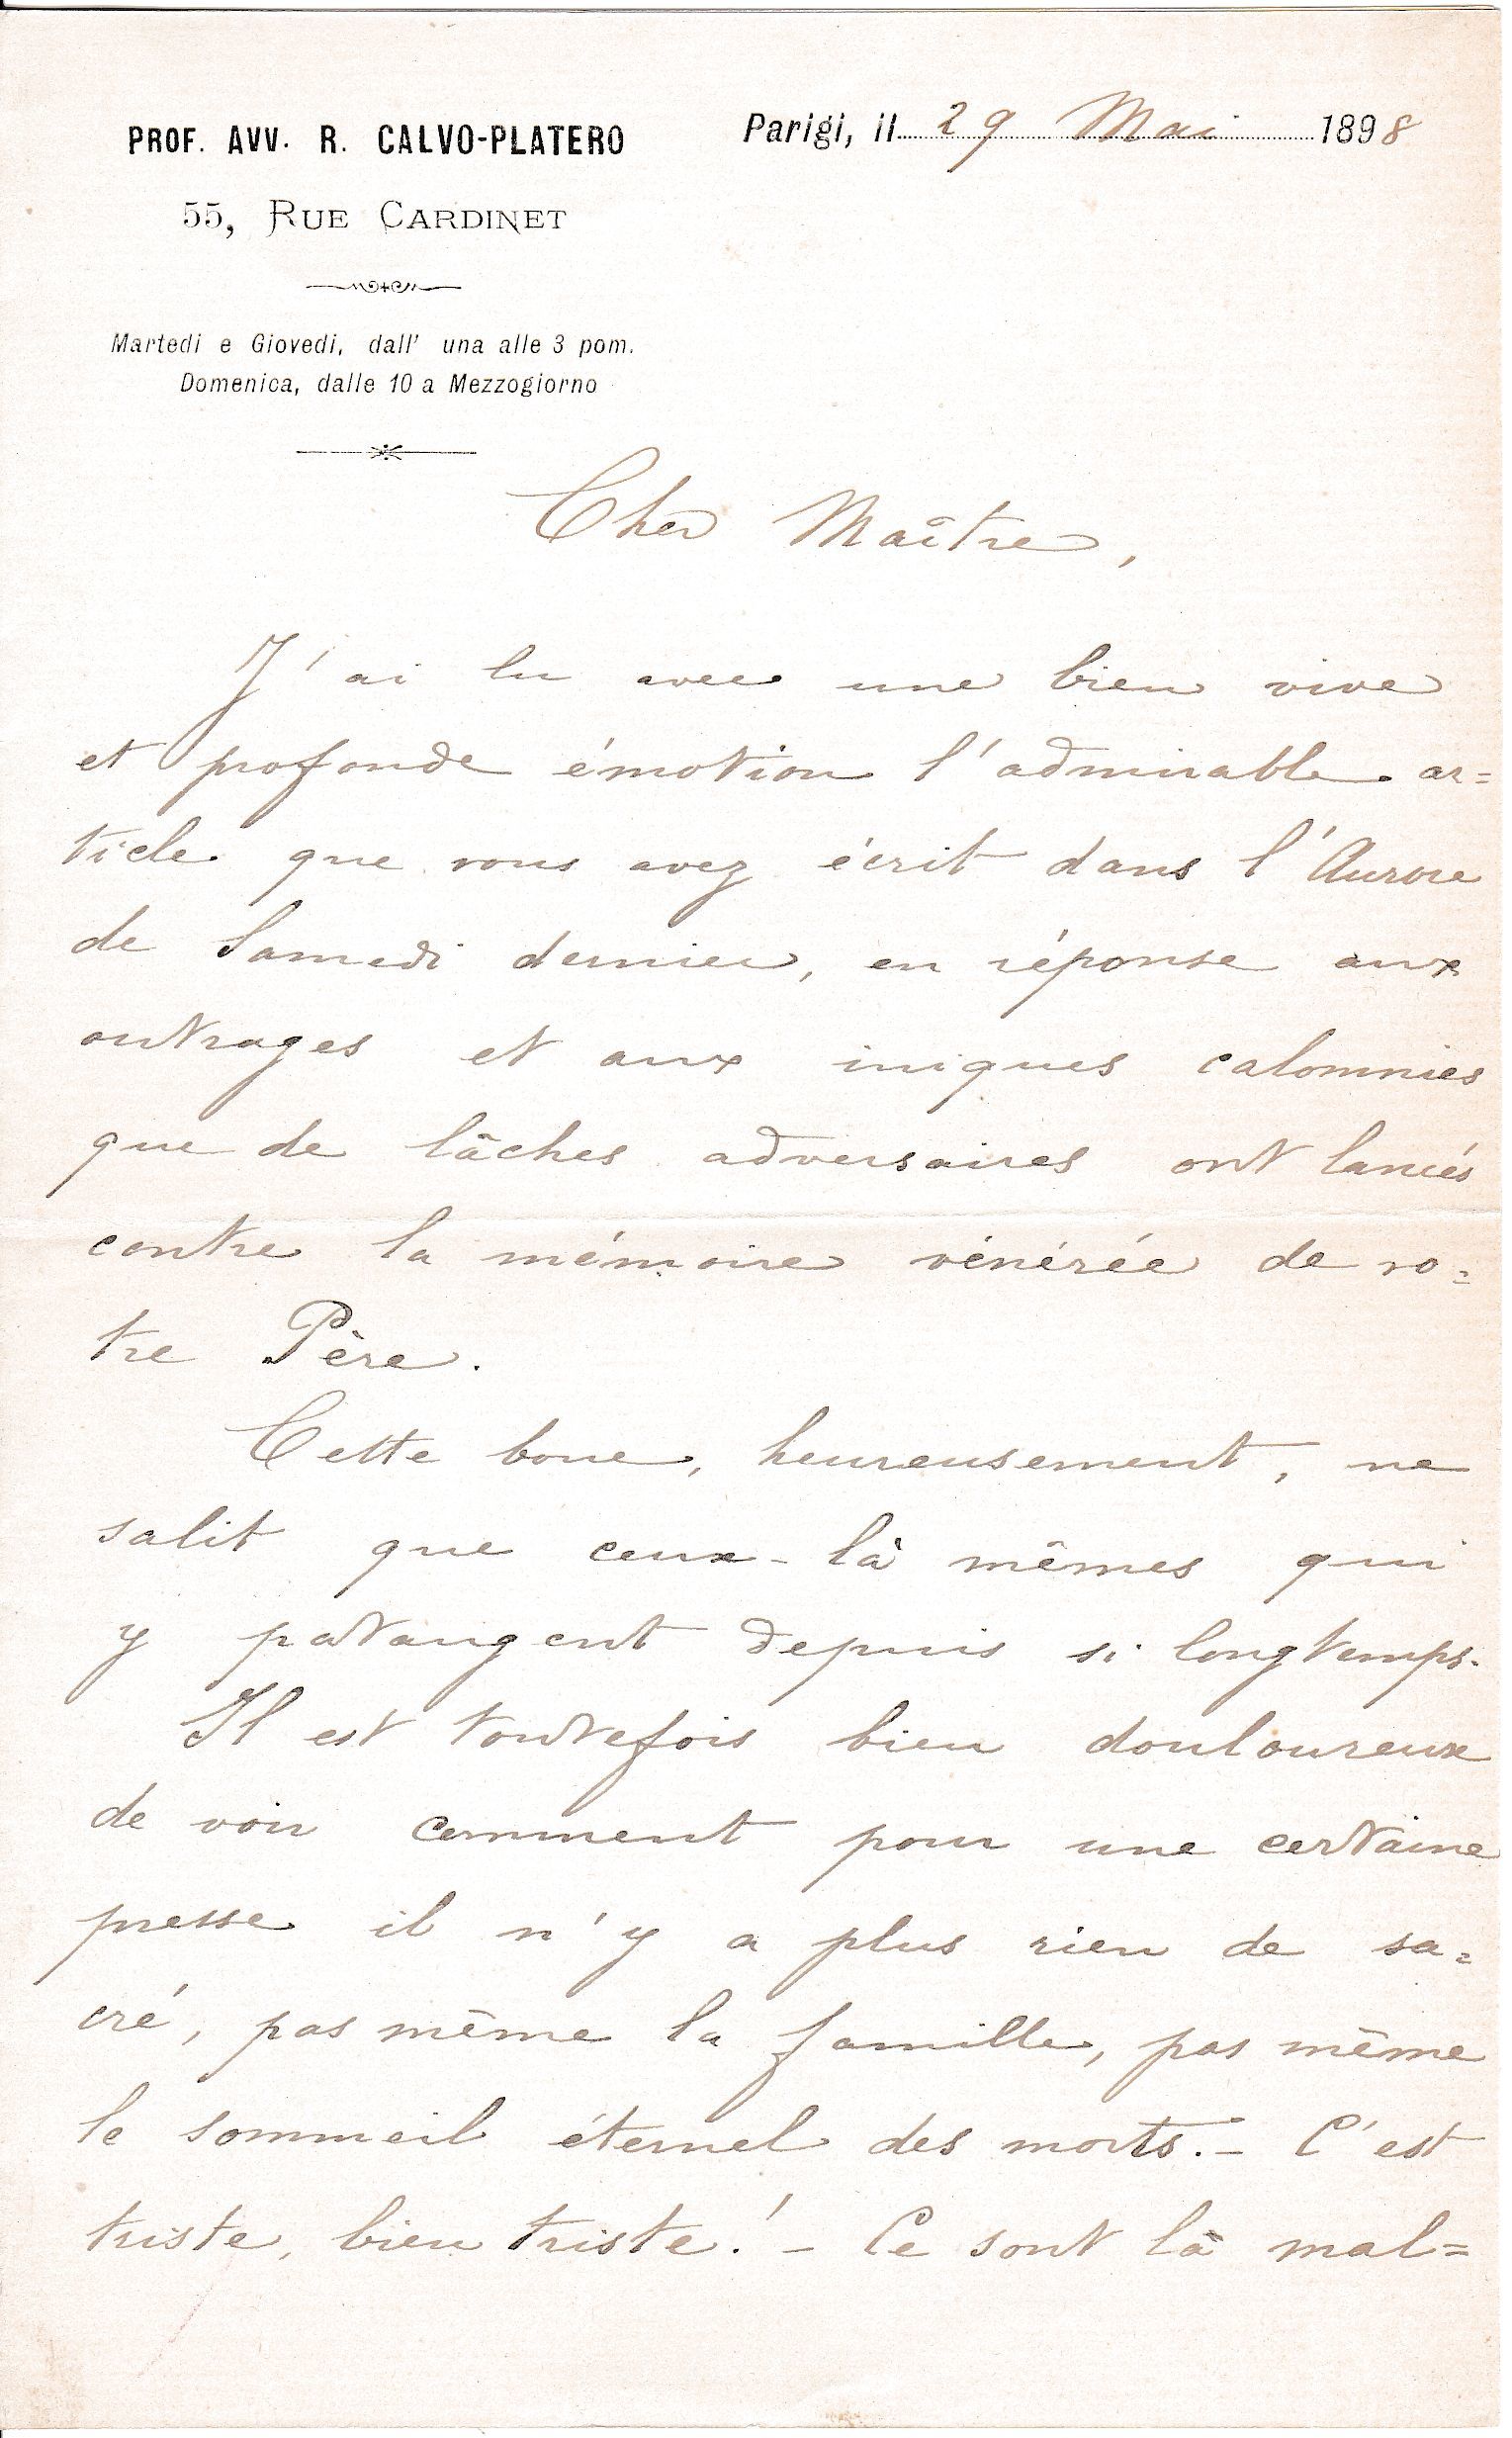 PROF. AVV. R. CALVO-PLATERO
Parigi, il 29 Mai 1898
55, RUE CARDINET
Martedi e Giovedi, dall' una alle 3 pom.
Domenica, dalle 10 a Mezzogiorno
Cher Maître,
J'ai lu avec une bien vive
et profonde émotion l'admirable ar=
ticle que vous avez écrit dans l'Aurore
de Samedi dernier, en réponse aux
outrages et aux iniques calomnies
que de lâches adversaires ont lancés
contre la mémoire vénérée de vo=
tre Père.
Cette boue, heureusement, ne
salit que ceux-là mêmes qui
y pataugent depuis si longtemps.
Il est toutefois bien douloureux
de voir comment pour une certaine
presse il n'y a plus rien de sa=
cré, pas même la famille, pas même
le sommeil éternel des morts. – C'est
triste, bien triste! – Ce sont là mal=